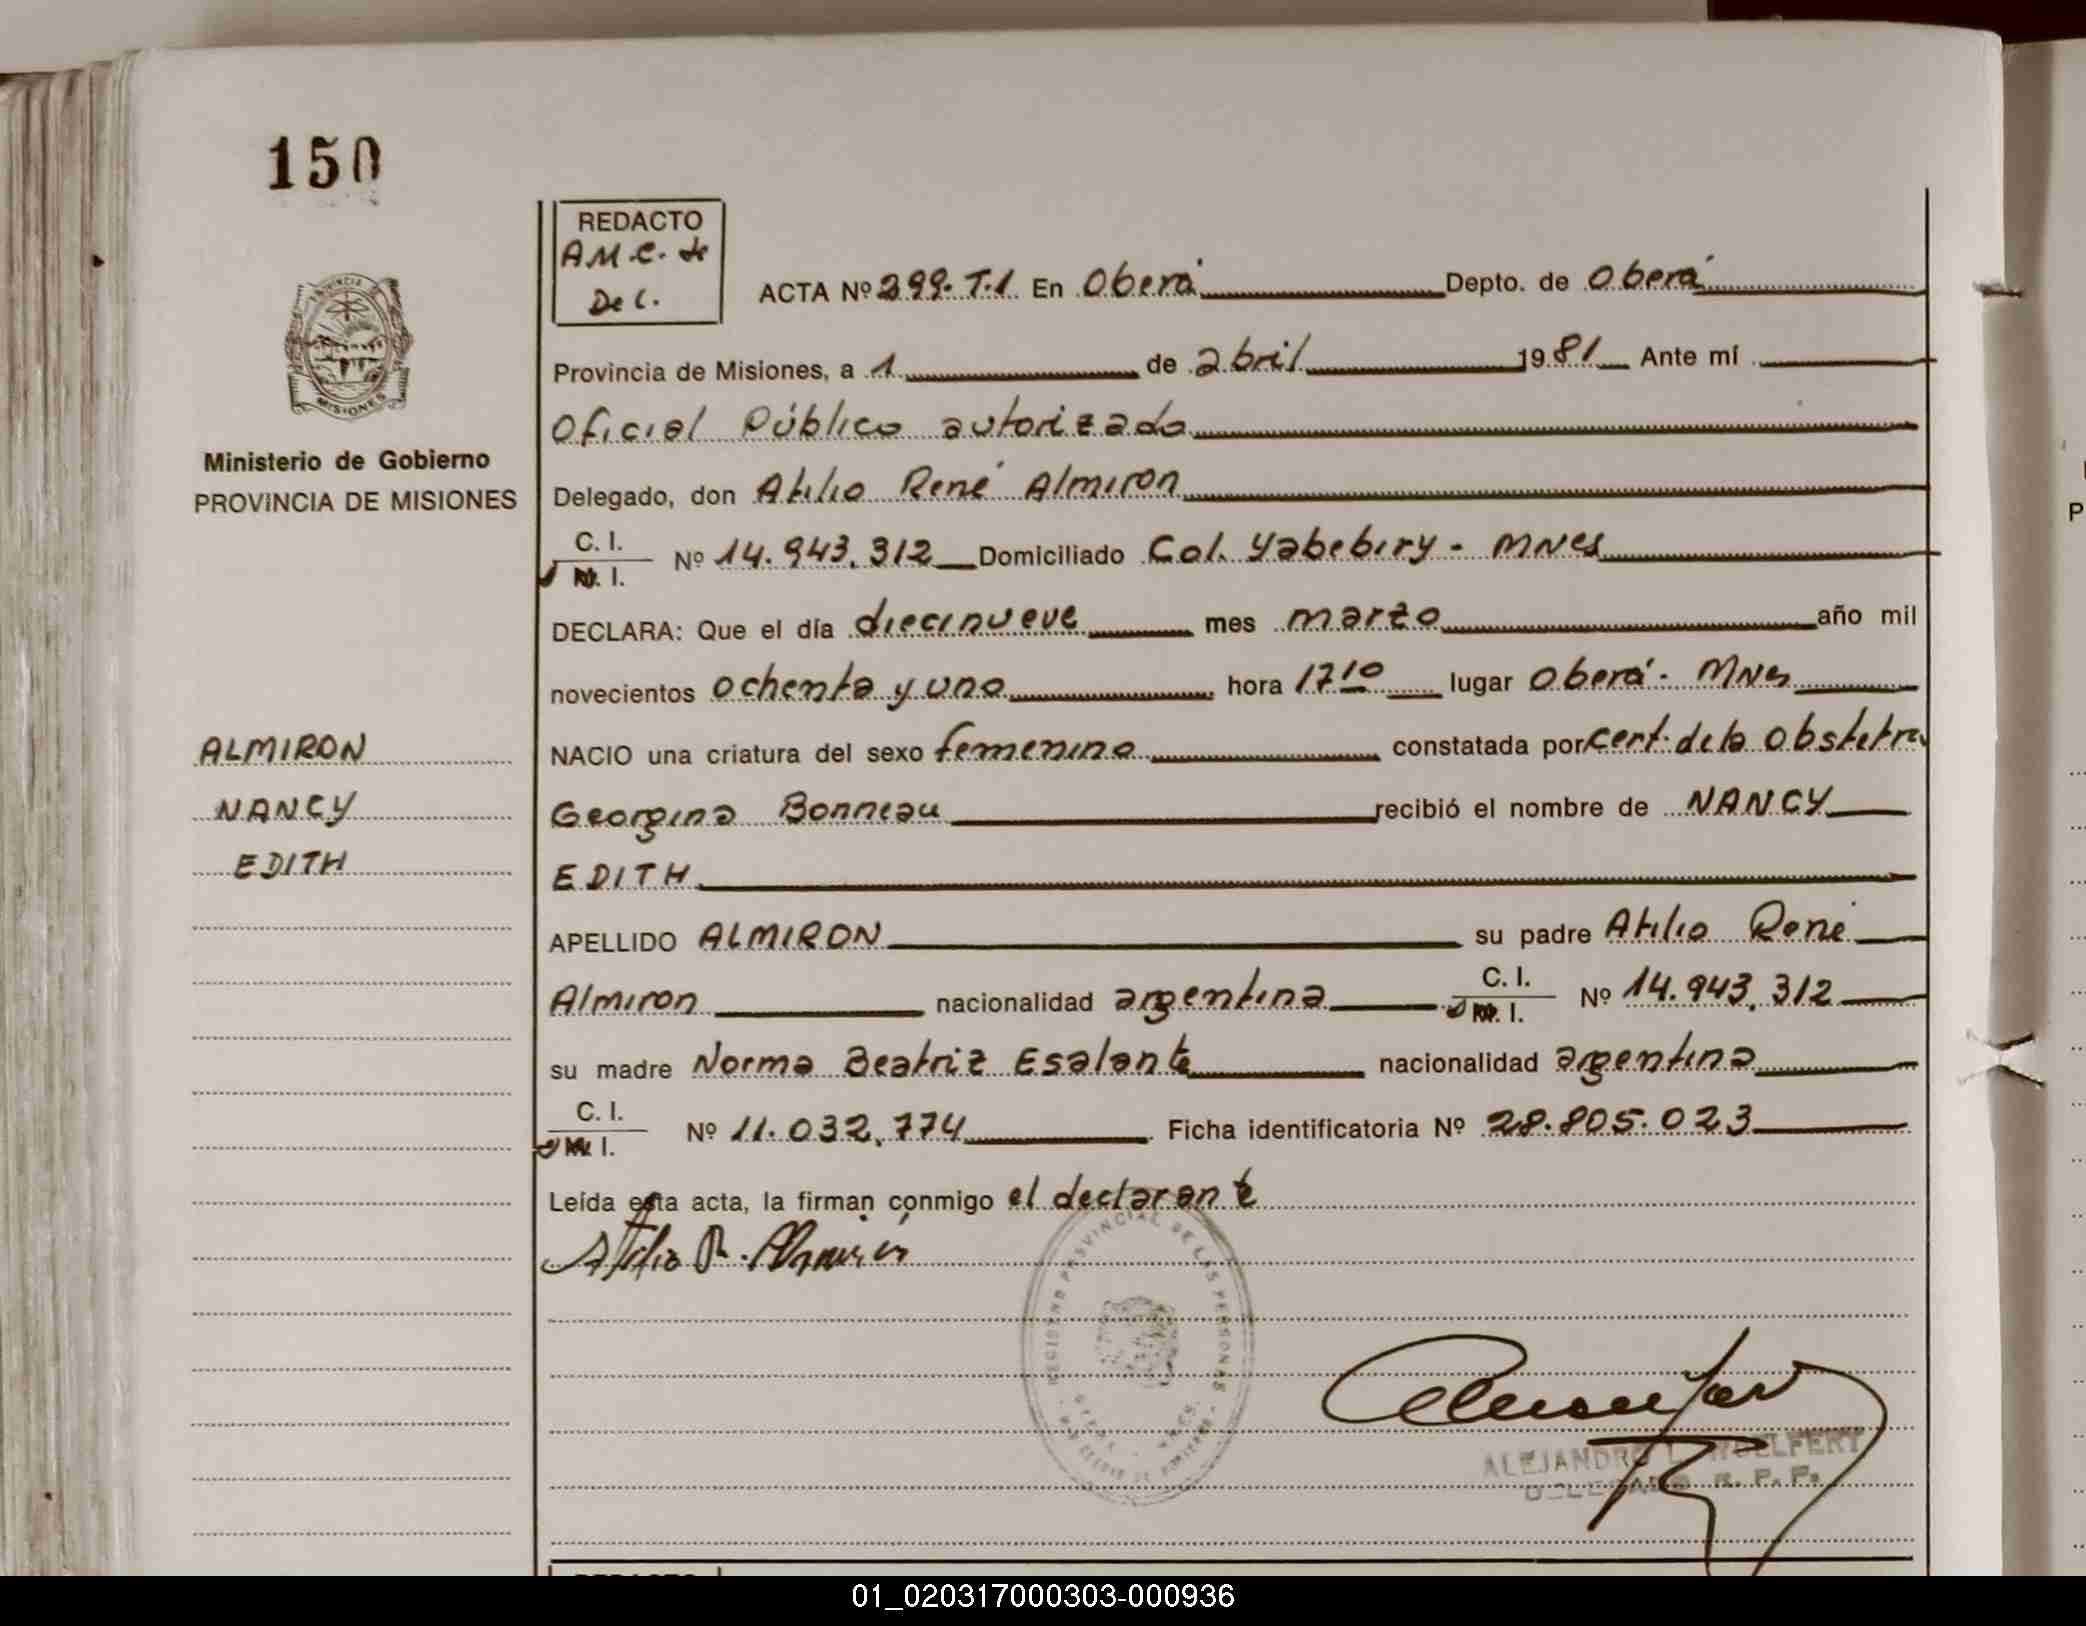 150
REDACTO
A.M.C. de
De C.
ACTA Nº 299. T.1 En Oberá Depto. de Oberá
Provincia de Misiones, a 1 de abril 1981 Ante mí
Oficial Público autorizado
Delegado, don Atilio René Almiron
C. I.
Nº 14.943.312 Domiciliado Col. Yabebiry - MNes
I.
DECLARA: Que el día diecinueve mes marzo año mil
novecientos ochenta y uno hora 17 10 lugar Oberá - MNes
NACIO una criatura del sexo femenino constatada por cert. de la Obstetra
Georgina Bonneau recibió el nombre de NANCY
EDITH
APELLIDO ALMIRON su padre Atilio René
Almiron nacionalidad argentina C. I. Nº 14.943.312
I.
su madre Norma Beatriz Esalante nacionalidad argentina
C. I.
Nº 11.032.774 Ficha identificatoria Nº 28.805.023
I.
Leída esta acta, la firman conmigo el declarante
Atilio R. Almirón
PROVINCIA DE
MISIONES
Ministerio de Gobierno
PROVINCIA DE MISIONES
ALMIRON
NANCY
EDITH
REGISTRO PROVINCIAL DE LAS PERSONAS
ALEJANDRO L. WOELFERT
DELEGADO R. P. P.
01_020317000303-000936